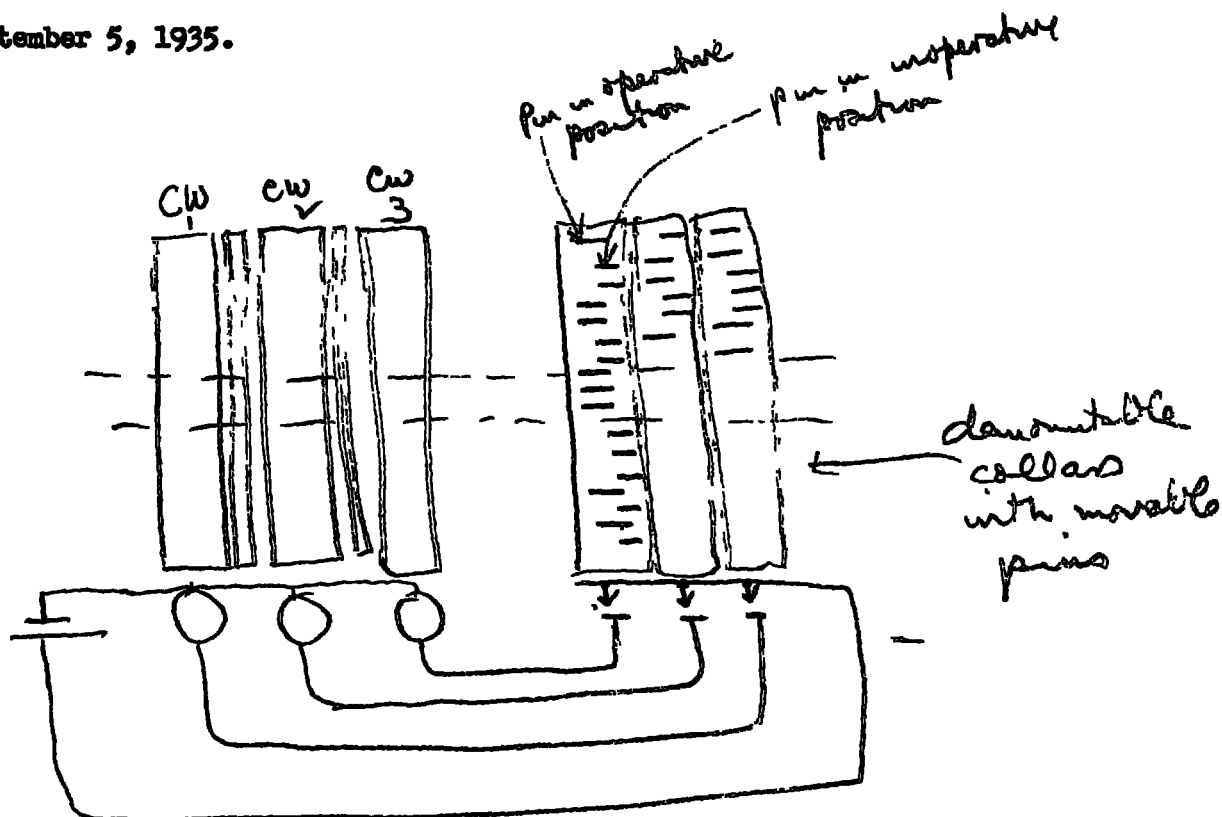 tember 5, 1935.
Pin in operative
position
pin in inoperative
position
CW
1
CW
2
CW
3
demountable
collars
with movable
pins